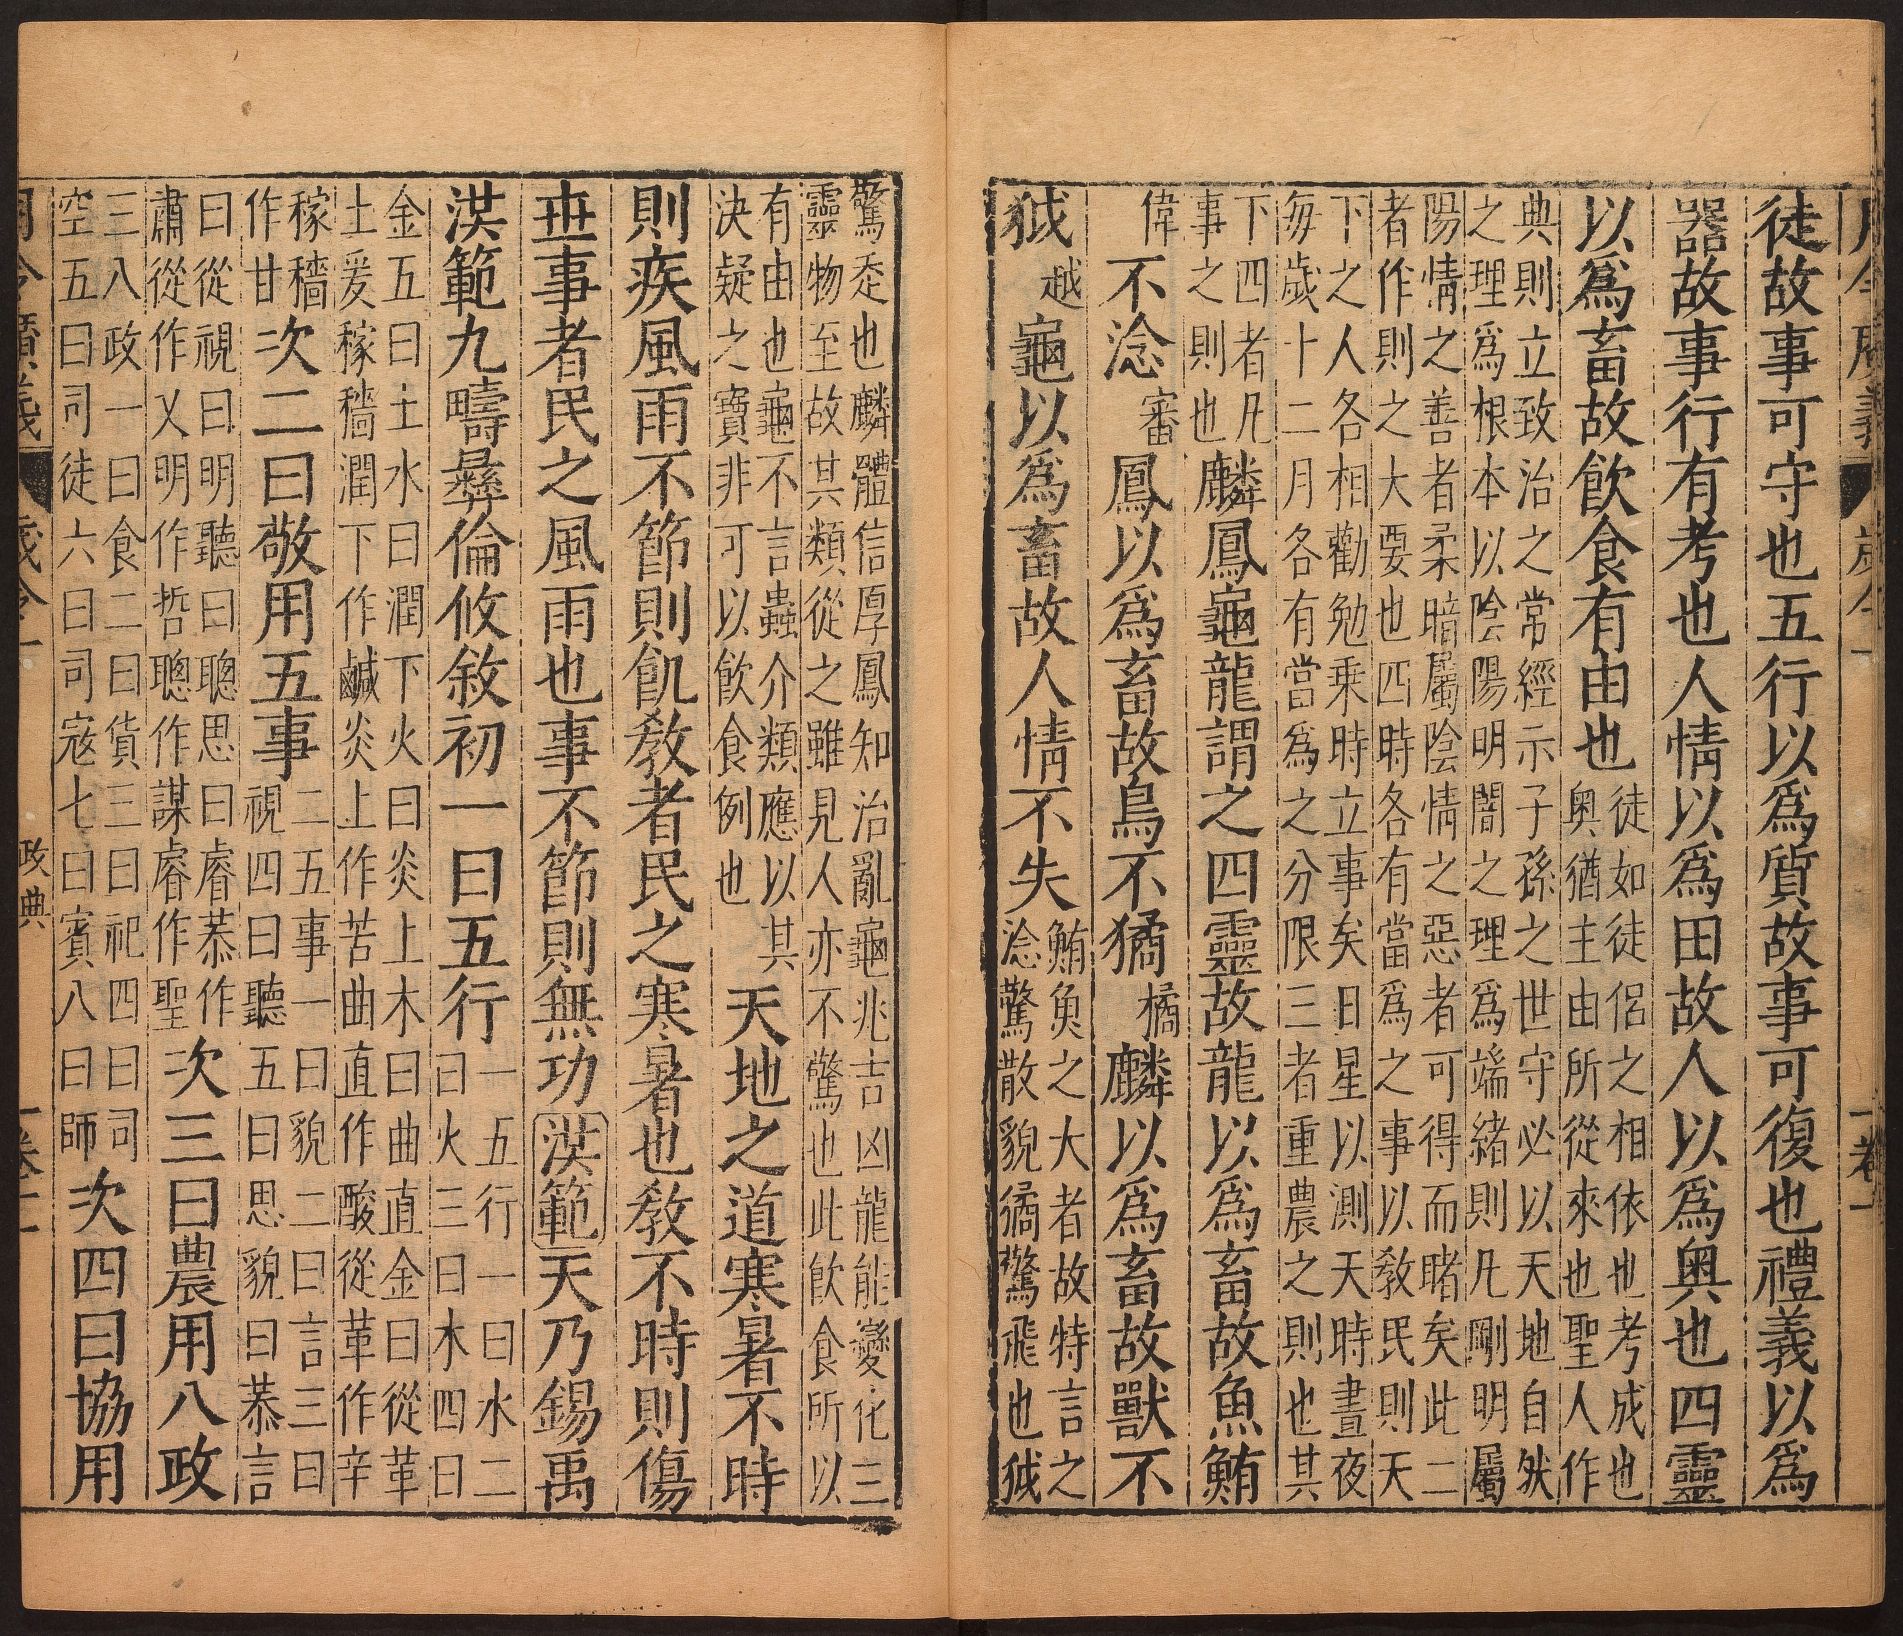 月令廣義 歲令一
徒故事可守也五行以爲質故事可復也禮義以爲
器故事行有考也人情以爲田故人以爲奧也四靈
以爲畜故飲食有由也
徒如徒侶之相依也考成也
奧猶主由所從來也聖人作
典則立致治之常經示子孫之世守必以天地自然
之理爲根本以陰陽明闇之理爲端緒則凡剛明屬
陽情之善者柔暗屬陰情之惡者可得而睹矣此二
者作則之大要也四時各有當爲之事以敎民則天
下之人各相勸勉乘時立事矣日星以測天時晝夜
每歲十二月各有當爲之分限三者重農之則也其
下四者凡
事之則也
麟鳳龜龍謂之四靈故龍以爲畜故魚鮪
偉不淰審鳳以爲畜故鳥不獝橘麟以爲畜故獸不
狘越龜以爲畜故人情不失
鮪魚之大者故特言之
淰驚散貌獝驚飛也狘
驚走也麟體信厚鳳知治亂龜兆吉凶龍能變化三
靈物至故其類從之雖見人亦不驚也此飲食所以
有由也龜不言蟲介類應以其
決疑之寶非可以飲食例也
天地之道寒暑不時
則疾風雨不節則飢敎者民之寒暑也敎不時則傷
世事者民之風雨也事不節則無功洪範天乃錫禹
洪範九疇彝倫攸敘初一曰五行
一五行一曰水二
曰火三曰木四曰
金五曰土水曰潤下火曰炎上木曰曲直金曰從革
土爰稼穡潤下作鹹炎上作苦曲直作酸從革作辛
稼穡
作甘
次二曰敬用五事
二五事一曰貌二曰言三曰
視四曰聽五曰思貌曰恭言
曰從視曰明聽曰聰思曰睿恭作
肅從作乂明作哲聰作謀睿作聖
次三曰農用八政
三八政一曰食二曰貨三曰祀四曰司
空五曰司徒六曰司寇七曰賓八曰師
次四曰協用
月令廣義 歲令一 政典 卷二